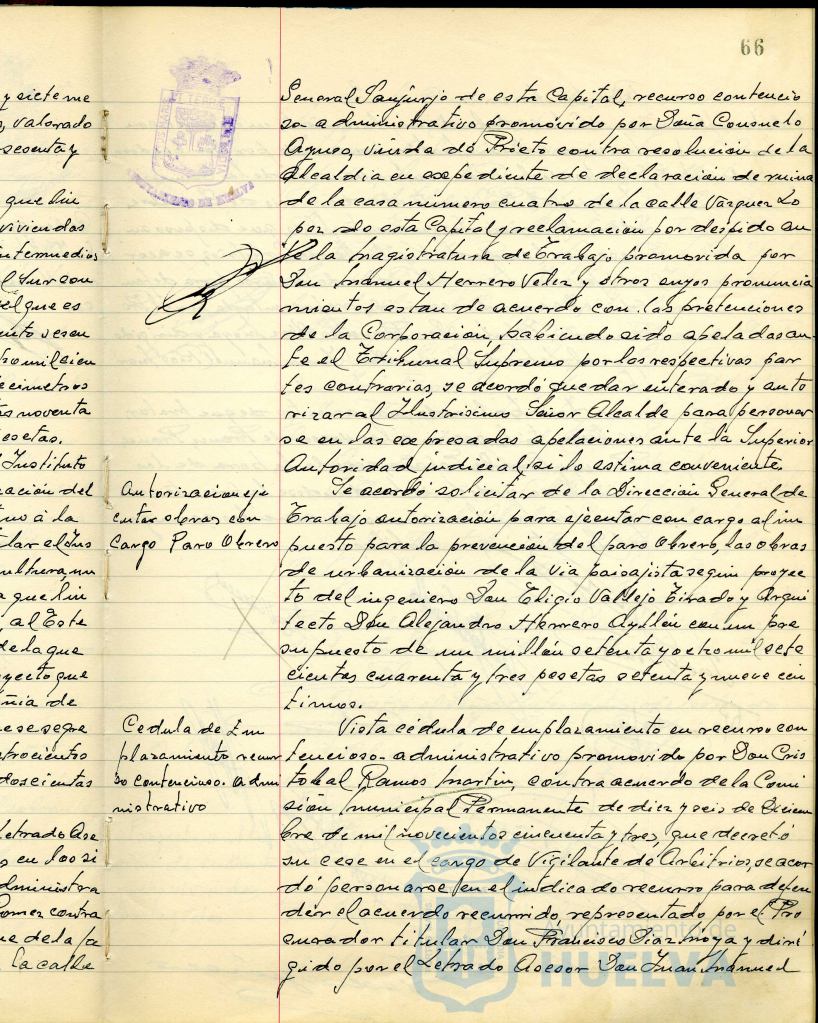 66
y siete me
s, valorado
sesenta y
que lin
viviendas
intermedios
l Sur con
el que es
ento sesen
tro mil cien
ecimetros
tas noventa
esetas.
Instituto
ración del
no a la
lar el Ins
ultura, un
a que lin
, al Este
de la que
yecto que
ñia de
e se segre
trocientos
doscientas
Letrado Ase
s en los si
dministra
Gomez contra
ue de la ca
la calle
AYUNTAMIENTO DE HUELVA
Autorizacion eje
cutar obras con
cargo Paro Obrero
Cedula de Em
plazamiento recur
so contencioso-admi
nistrativo
General Sanjurjo de esta Capital, recurso contencio
so-administrativo promovido por Doña Consuelo
viuda de Prieto contra resolución de la
Alcaldia en expediente de declaración de ruina
de la casa numero cuatro de la calle Vazquez Lo
pez de esta Capital y reclamación por despido an
te la Magistratura de Trabajo promovida por
Don Manuel Herrero Velez y otros cuyos pronuncia
mientos estan de acuerdo con las pretenciones
de la Corporación, habiendo sido apeladas an-
te el Tribunal Supremo por las respectivas par
tes contrarias, se acordó quedar enterado y auto
rizar al Ilustrisimo Señor Alcalde para personar
se en las expresadas apelaciones ante la Superior
Autoridad judicial, si lo estima conveniente.
Se acordó solicitar de la Dirección General de
Trabajo autorización para ejecutar con cargo al im
puesto para la prevención del paro Obrero, las obras
de urbanización de la Via paisajista segun proyec
to del ingeniero Don Eligio Vallejo Tirado y Arqui
tecto Don Alejandro Herrero Ayllón con un pre
supuesto de un millón setenta y ocho mil sete
cientas cuarenta y tres pesetas setenta y nueve cén
timos.
Vista cédula de emplazamiento en recurso con
tencioso-administrativo promovido por Don Cris
tobal Ramos Martin, contra acuerdo de la Comi
sión Municipal Permanente de diez y seis de Diciem
bre de mil novecientos cincuenta y tres, que decretó
su cese en el cargo de Vigilante de Arbitrios, se acor
dó personarse en el indicado recurso para defen
der el acuerdo recurrido, representado por el Pro
curador titular Don Francisco Diaz Moya y diri
gido por el Letrado Asesor Don Juan Manuel
Ayuntamiento de
HUELVA